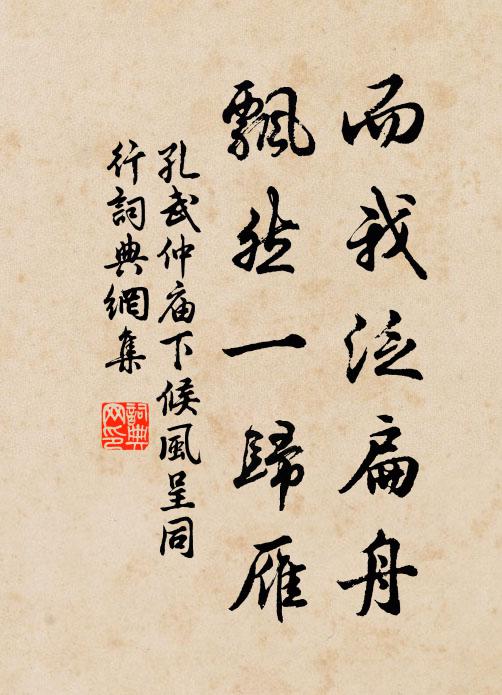 而我泛扁舟
飄然一歸雁
孔武仲庙下候風呈同
行詞典網集
詞典
网印